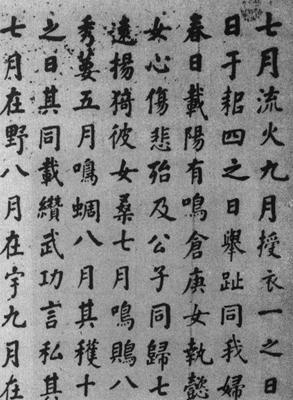 七月流火九月授衣一之日
日于耜四之日舉趾同我婦
春日載陽有鳴倉庚女執懿
女心傷悲殆及公子同歸七
遠揚猗彼女桑七月鳴鵙八
秀葽五月鳴蜩八月其穫十
之日其同載纘武功言私其
七月在野八月在宇九月在